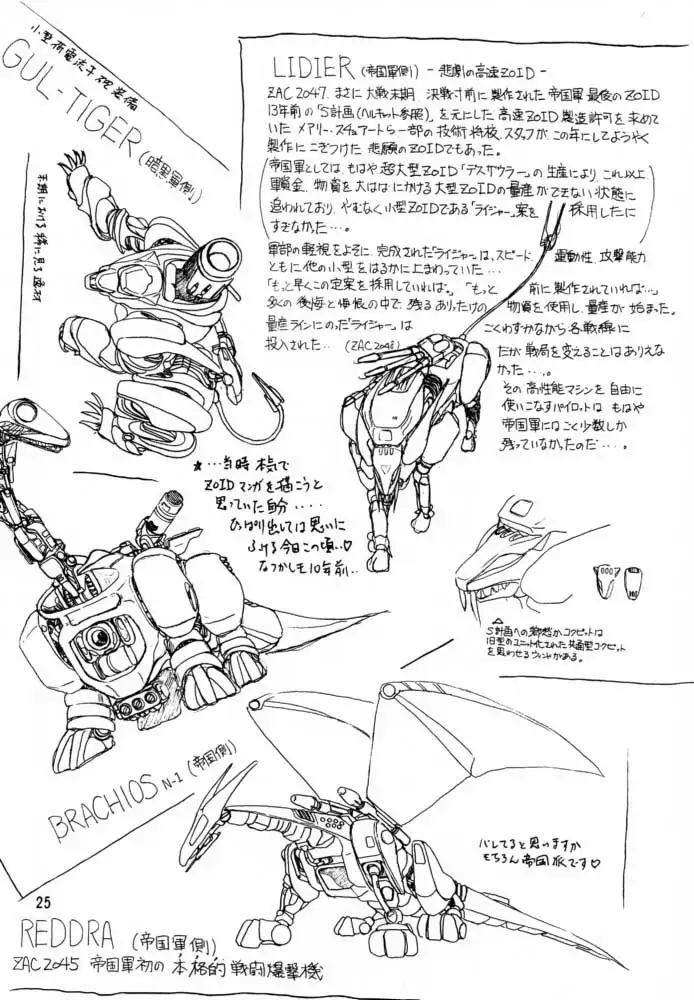 小型荷電流子砲装備
GUL-TIGER (暗黒軍側)
LIDIER (帝国軍側) - 悲劇の高速ZOID -
ZAC 2047. まさに大戦末期 決戦寸前に製作された帝国軍最後のZOID
13年前の「S計画(ヘルキャット参照)」を元にした高速ZOID製造許可を求めて
いたメアリー.スチュアートら一部の技術将校.スタッフが、この年にしてようやく
製作にこぎつけた悲願のZOIDでもあった。
帝国軍としては、もはや超大型ZOID「デスザウラー」の生産により、これ以上
軍資金、物資を大はばにかける大型ZOIDの量産ができない状態に
追われており、やむなく小型ZOIDである「ライジャー」案を 採用したに
すぎなかった…。
軍部の軽視をよそに、完成された「ライジャー」は、スピード、運動性、攻撃能力
ともに他の小型をはるかに上まわっていた…
「もっと早くこの定案を採用していれば。」「もっと 前に製作されていれば…」
多くの後悔と悔恨の中で、残るありったけの 物資を使用し、量産が始まった。
量産ラインにのった「ライジャー」は ごくわずかながら各戦線に
投入された… (ZAC2048)
だが戦局を変えることはありえな
かった…。
その高性能マシンを自由に
使いこなすパイロットは もはや
帝国軍にはごく少数しか
残っていなかったのだ…。
★…当時 本気で
ZOIDマンガを描こうと
思っていた自分....
ひっぱり出しては思いに
ふける今日この頃…♡
なつかしき10年前..
S計画への郷愁かコクピットは
旧型のユニット化された共通型コクピット
を思わせるウィンドがある。
BRACHIOS N-1 (帝国側)
バレてると思いますが
もちろん帝国派です♡
25
REDDRA (帝国軍側)
ZAC2045 帝国軍初の本格的戦闘爆撃機